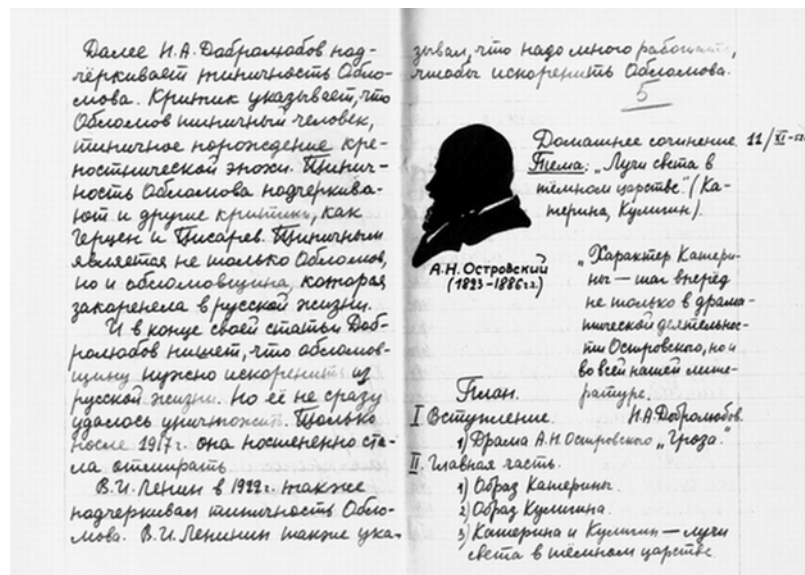 Далее Н.А. Добролюбов под-
чёркивает типичность Обло-
мова. Критик указывает, что
Обломов типичный человек,
типичное порождение кре-
постнической эпохи. Типич-
ность Обломова подчеркива-
ют и другие критики, как
Герцен и Писарев. Типичным
является не только Обломов,
но и обломовщина, которая
закоренела в русской жизни.
И в конце своей статьи Доб-
ролюбов пишет, что обломов-
щину нужно искоренить из
русской жизни. Но её не сразу
удалось уничтожить. Только
после 1917г. она постепенно ста-
ла отмирать
В.И. Ленин в 1922г. также
подчеркивал типичность Обло-
мова. В.И. Ленин также ука-
зывал, что надо много работать,
чтобы искоренить Обломова.
5
Домашнее сочинение 11/XI
Тема: „Лучи света в
тёмном царстве." (Ка-
терина, Кулигин).
А.Н. Островский
(1823-1886гг.)
„Характер Катери-
ны — шаг вперёд
не только в драма-
тической деятельнос-
ти Островского, но и
во всей нашей лите-
ратуре.
Н.А. Добролюбов.
План.
I Вступление.
1) Драма А.Н. Островского „Гроза."
II. Главная часть.
1) Образ Катерины.
2) Образ Кулигина.
3) Катерина и Кулигин — лучи
света в тёмном царстве.